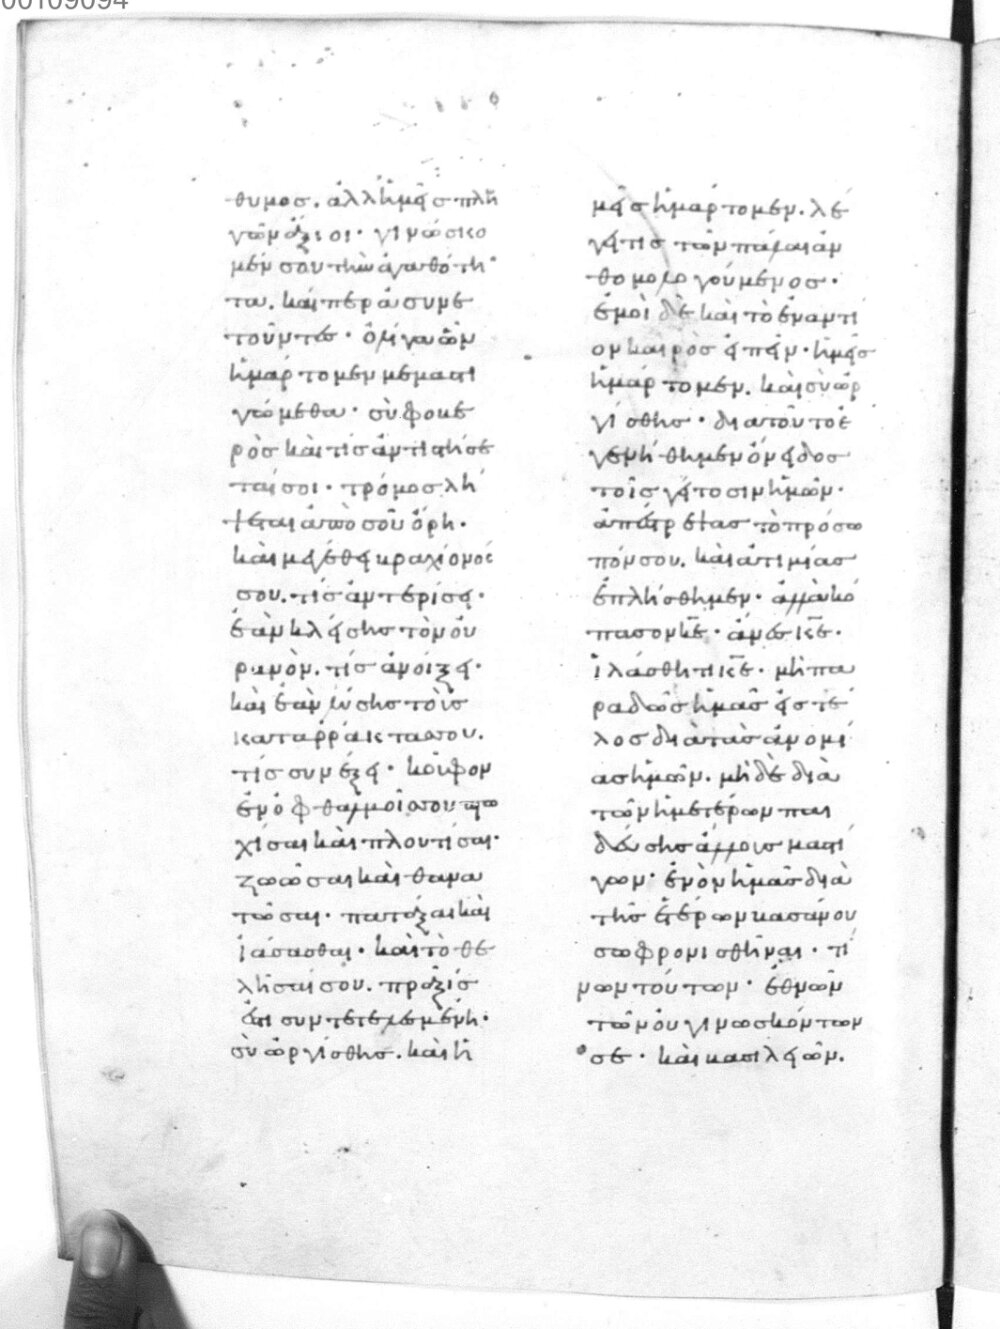 00109094
θυμοσ. ἀλλ ἡμεῖσ πλη
γῶν ἄξιοι· γινώσκο
μέν σου τὴν ἀγαθότη
τα. καίπερ ἀσυνε
τοῦντεσ· ὀλίγα ὧν
ἡμάρτομεν μεμαστι
γώμεθα· σὺ φοβε
ρὸσ καὶ τίσ ἀντιστήσε
ταί σοι· τρόμοσ λή
ψεται ἀπὸ σοῦ ὄρη·
καὶ μεγέθει βραχίονοσ
σου. τίσ ἀντερίσει·
ἐὰν κλείσησ τὸν οὐ
ρανὸν. τίσ ἀνοίξει·
καὶ ἐὰν λύσησ τοὺσ
καταρράκτασ σου.
τίσ συνέξει· κοῦφον
ἐν ὀφθαλμοῖσ σου πτω
χίσαι καὶ πλουτίσαι·
ζωῶσαι καὶ θανα
τῶσαι· πατάξαι καὶ
ἰάσασθαι· καὶ τὸ θέ
λησαί σου. πρᾶξίσ
ἐστι συντετελεσμένη·
σὺ ὠργίσθησ. καὶ ἡ
μεῖσ ἡμάρτομεν. λέ
γει τισ τῶν παλαι ἀν
θομολογούμενοσ·
ἐμοὶ δὲ καὶ τὸ ἐναντί
ον καιρὸσ εἰπεῖν· ἡμεῖσ
ἡμάρτομεν. καὶ σὺ ὠρ
γίσθησ· διατοῦτο ἐ
γενήθημεν ὄνειδοσ
τοῖσ γείτοσιν ἡμῶν·
ἀπέστρεψασ τὸ πρόσω
πόν σου. καὶ ἀτιμίασ
ἐπλήσθημεν· ἀλλὰ κό
πασον κε· ἄνεσ κε·
ἱλάσθητι κε· μὴ πα
ραδῶσ ἡμᾶσ εἰσ τέ
λοσ διὰ τὰσ ἀνομί
ασ ἡμῶν. μὴ δὲ διὰ
τῶν ἡμετέρων παι
δεύσησ ἄλλουσ μαστί
γων· ἐνὸν ἡμᾶσ διὰ
τῆσ ἑτέρων βασάνου
σωφρονισθῆναι· τί
νων τούτων· ἐθνῶν
τῶν οὐ γινωσκόντων
σε· καὶ βασιλειῶν.